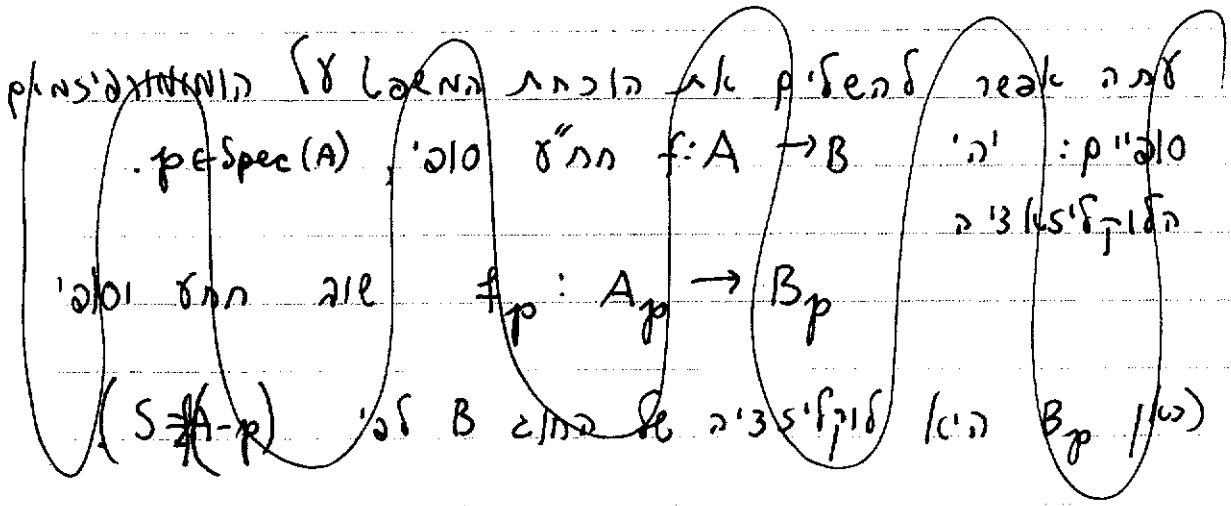 עתה אפשר להשלים את הוכחת המשפט על הומומורפיזמאם
סופיים: יהי f: A → B חח"ע סופי, p∈Spec(A).
הלוקליזאציה
f_p : A_p → B_p שוב חחע וסופי
(כאן B_p היא לוקליזציה של החוג B לפי S=f(A-p)).